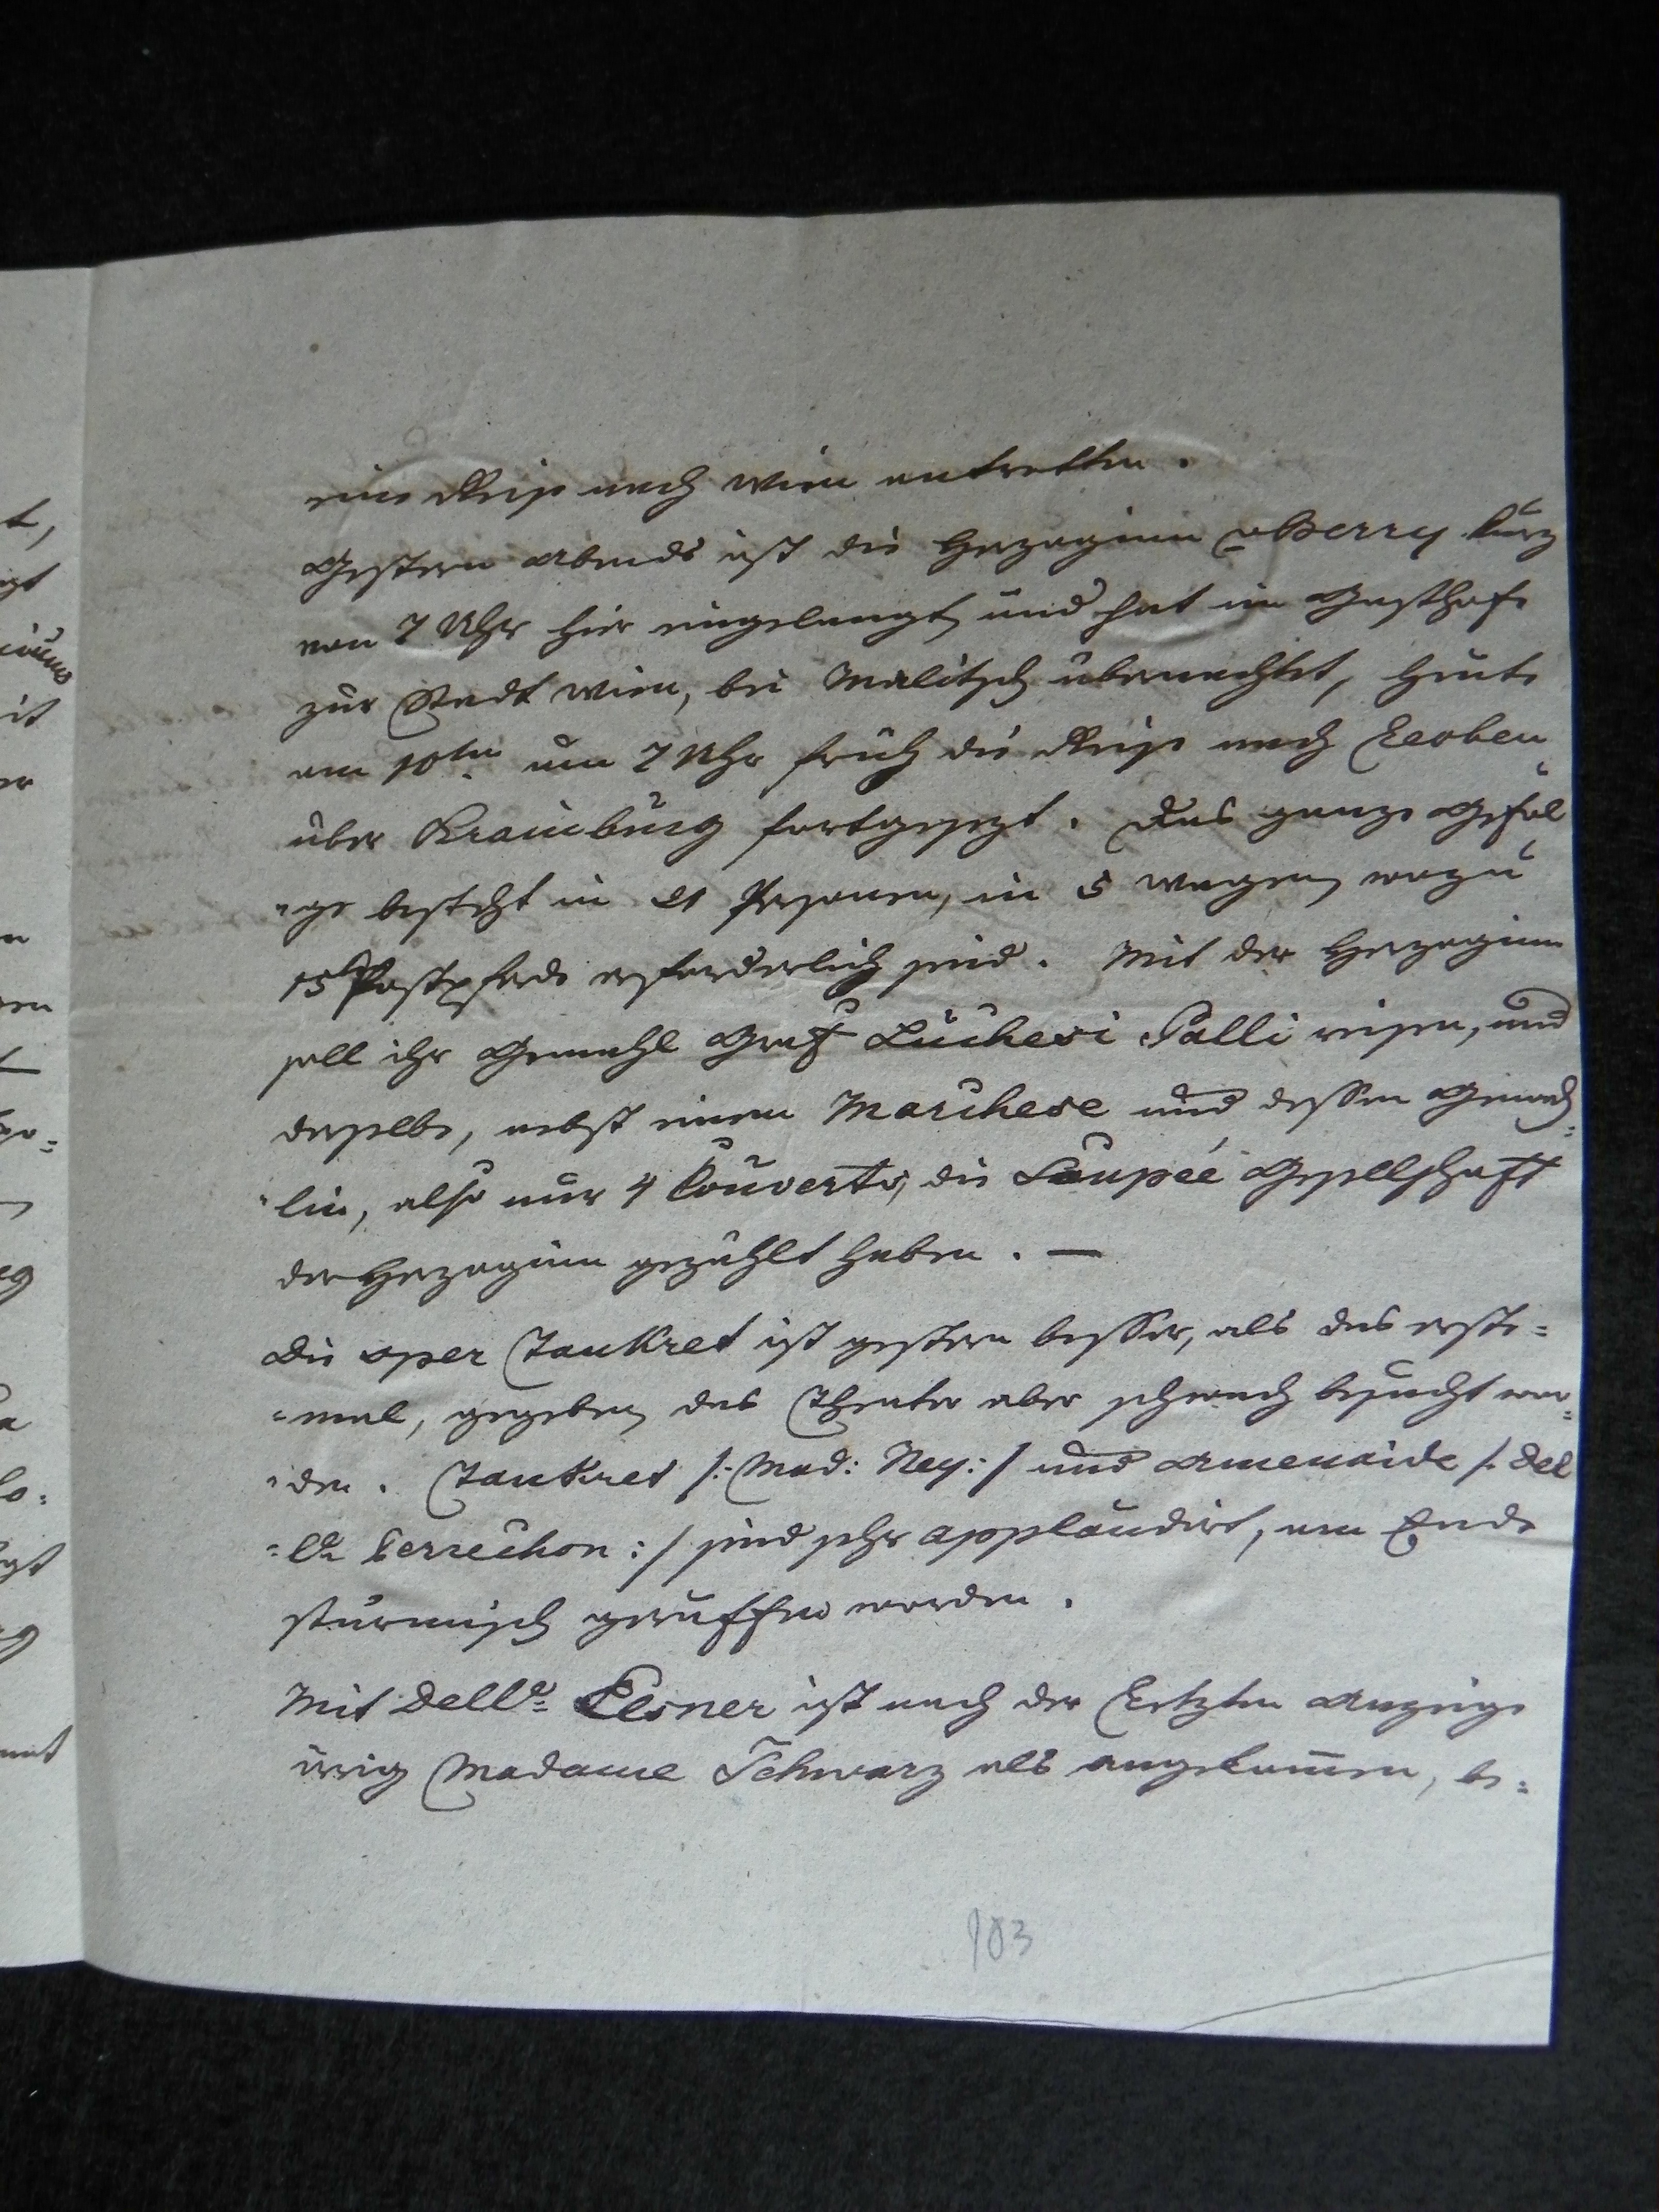 eine Reise nach Wien antretten.
Gestern Abends ist die Herzoginn v Berry kurz
von 7 Uhr hier eingelangt, und hat im Gasthofe
zur Stadt Wien, bei Malitsch übernachtet, heute
am 10ten um 7 Uhr früh die Reise nach Leoben
über Krainburg fortgesezt. Das ganze Gefol
=ge besteht in 21 Personen, in 5 Wagen, wozu
15 Postpferde erforderlich sind. Mit der Herzoginn
soll ihr Gemahl Graf Luchesi Palli reisen, und
derselbe, nebst einem Marchese und dessen Gemah=
=lin, also nur 4 Couverts, die Soupée Gesellschaft
der Herzoginn gezählt haben. —
Die Oper Tankret ist gestern besser, als das erste=
=mal, gegeben, das Theater aber schwach besucht wor=
=den. Tankret /: Mad: Ney :/ und Amenaide /: Del
=le Perrechon :/ sind sehr applaudirt, am Ende
stürmisch geruffen worden.
Mit Delle Elsner ist nach der Letzten Anzeige
irrig Madame Schwarz als angekommen, be=
103
t,
gt
it
er
n
en
gt